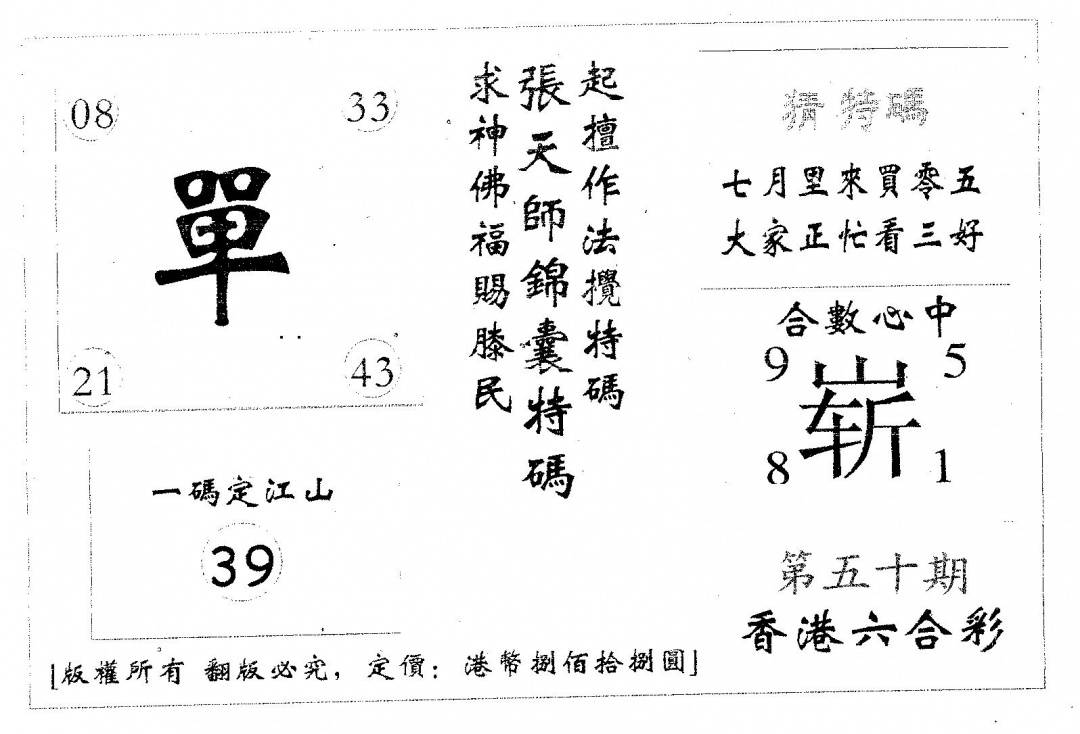 08
33
單
21
43
一碼定江山
39
起擅作法攪特碼
張天師錦囊特碼
求神佛福賜膝民
猜特碼
七月里來買零五
大家正忙看三好
合數必中
9
5
崭
8
1
第五十期
香港六合彩
[版權所有 翻版必究, 定價: 港幣捌佰拾捌圓]